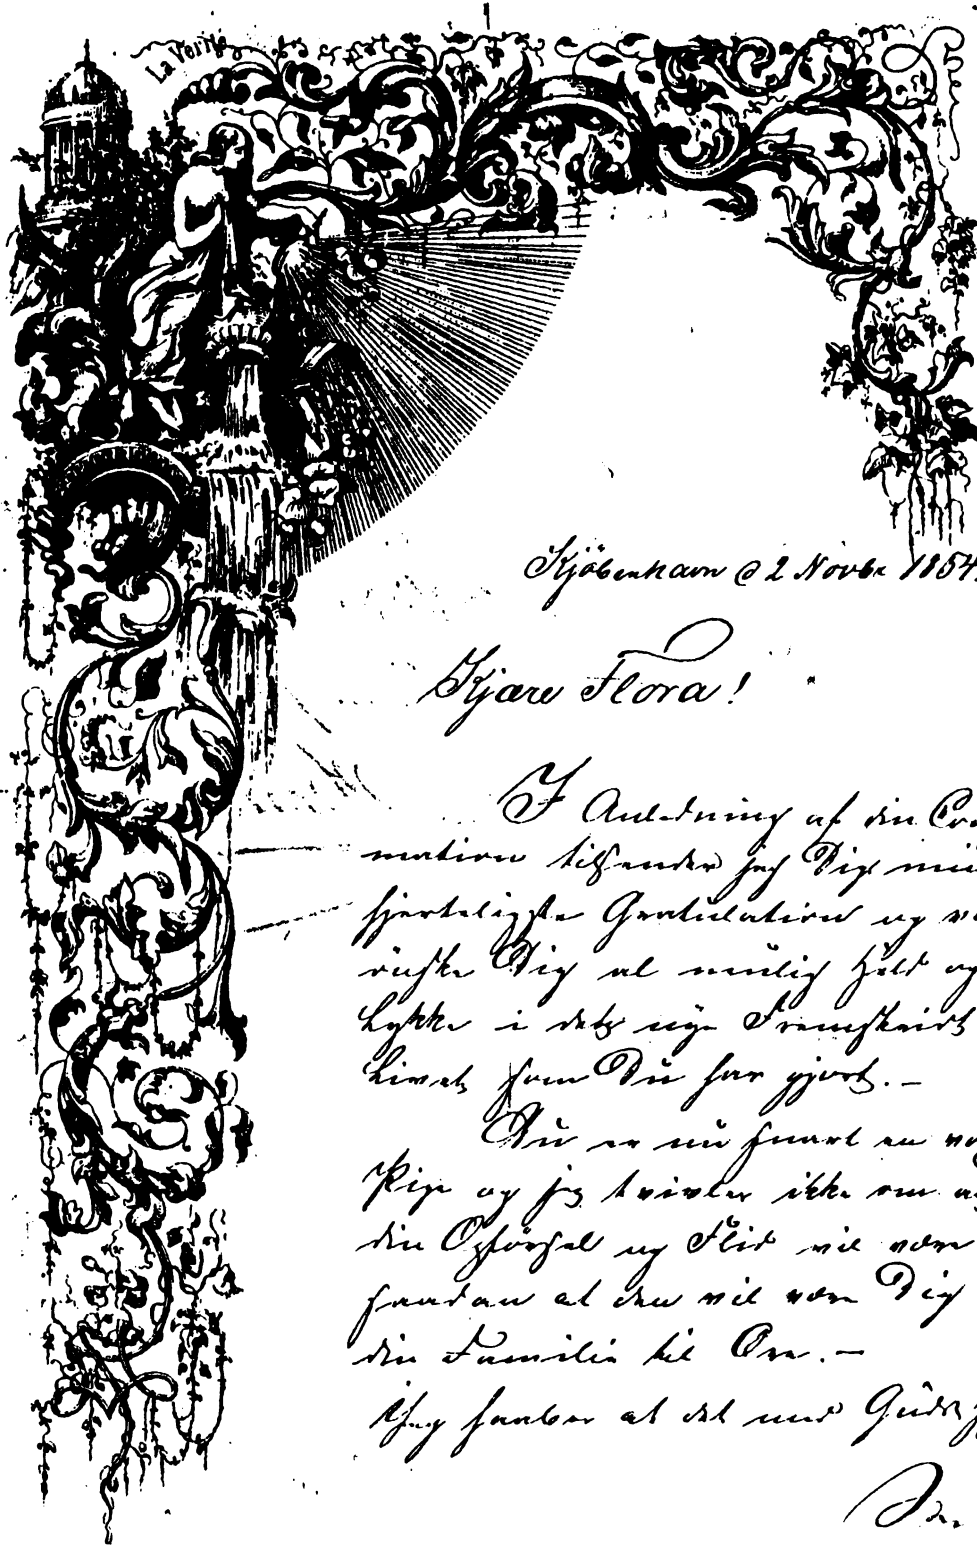 La Verité
Kjöbenhavn d 2 Novbr 1854.
Kjære Flora!
I Anledning af din Con
mation tilsender jeg Dig min
hjerteligste Gratulation og
önske Dig al mulig Held og
Lykke i dets nye Fremskridt
Livet som Du har gjort.—
Du er nu snart en
Pige og jeg tvivler ikke om a
din Opförsel og Flid vil være
saadan at den vil være Dig
din Familie til Ære.—
Jeg haaber at det med Guds